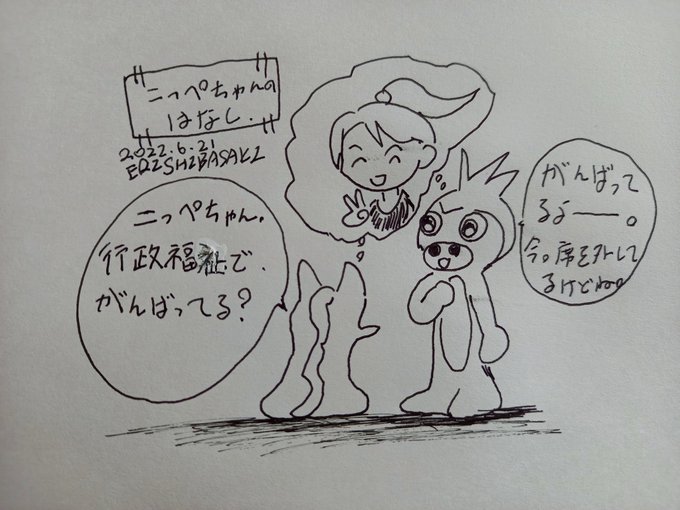 こっぺちゃんの
はなし.
2022.6.21
EIZI SHIBASAKI
こっぺちゃん.
行政福祉で.
がんばってる?
がんばって
るよーー。
今。席を外して
るけどね。